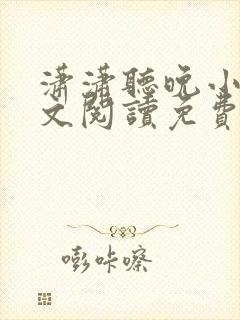 瀟瀟聽晚小
文閱讀免費
嘭咔嚓